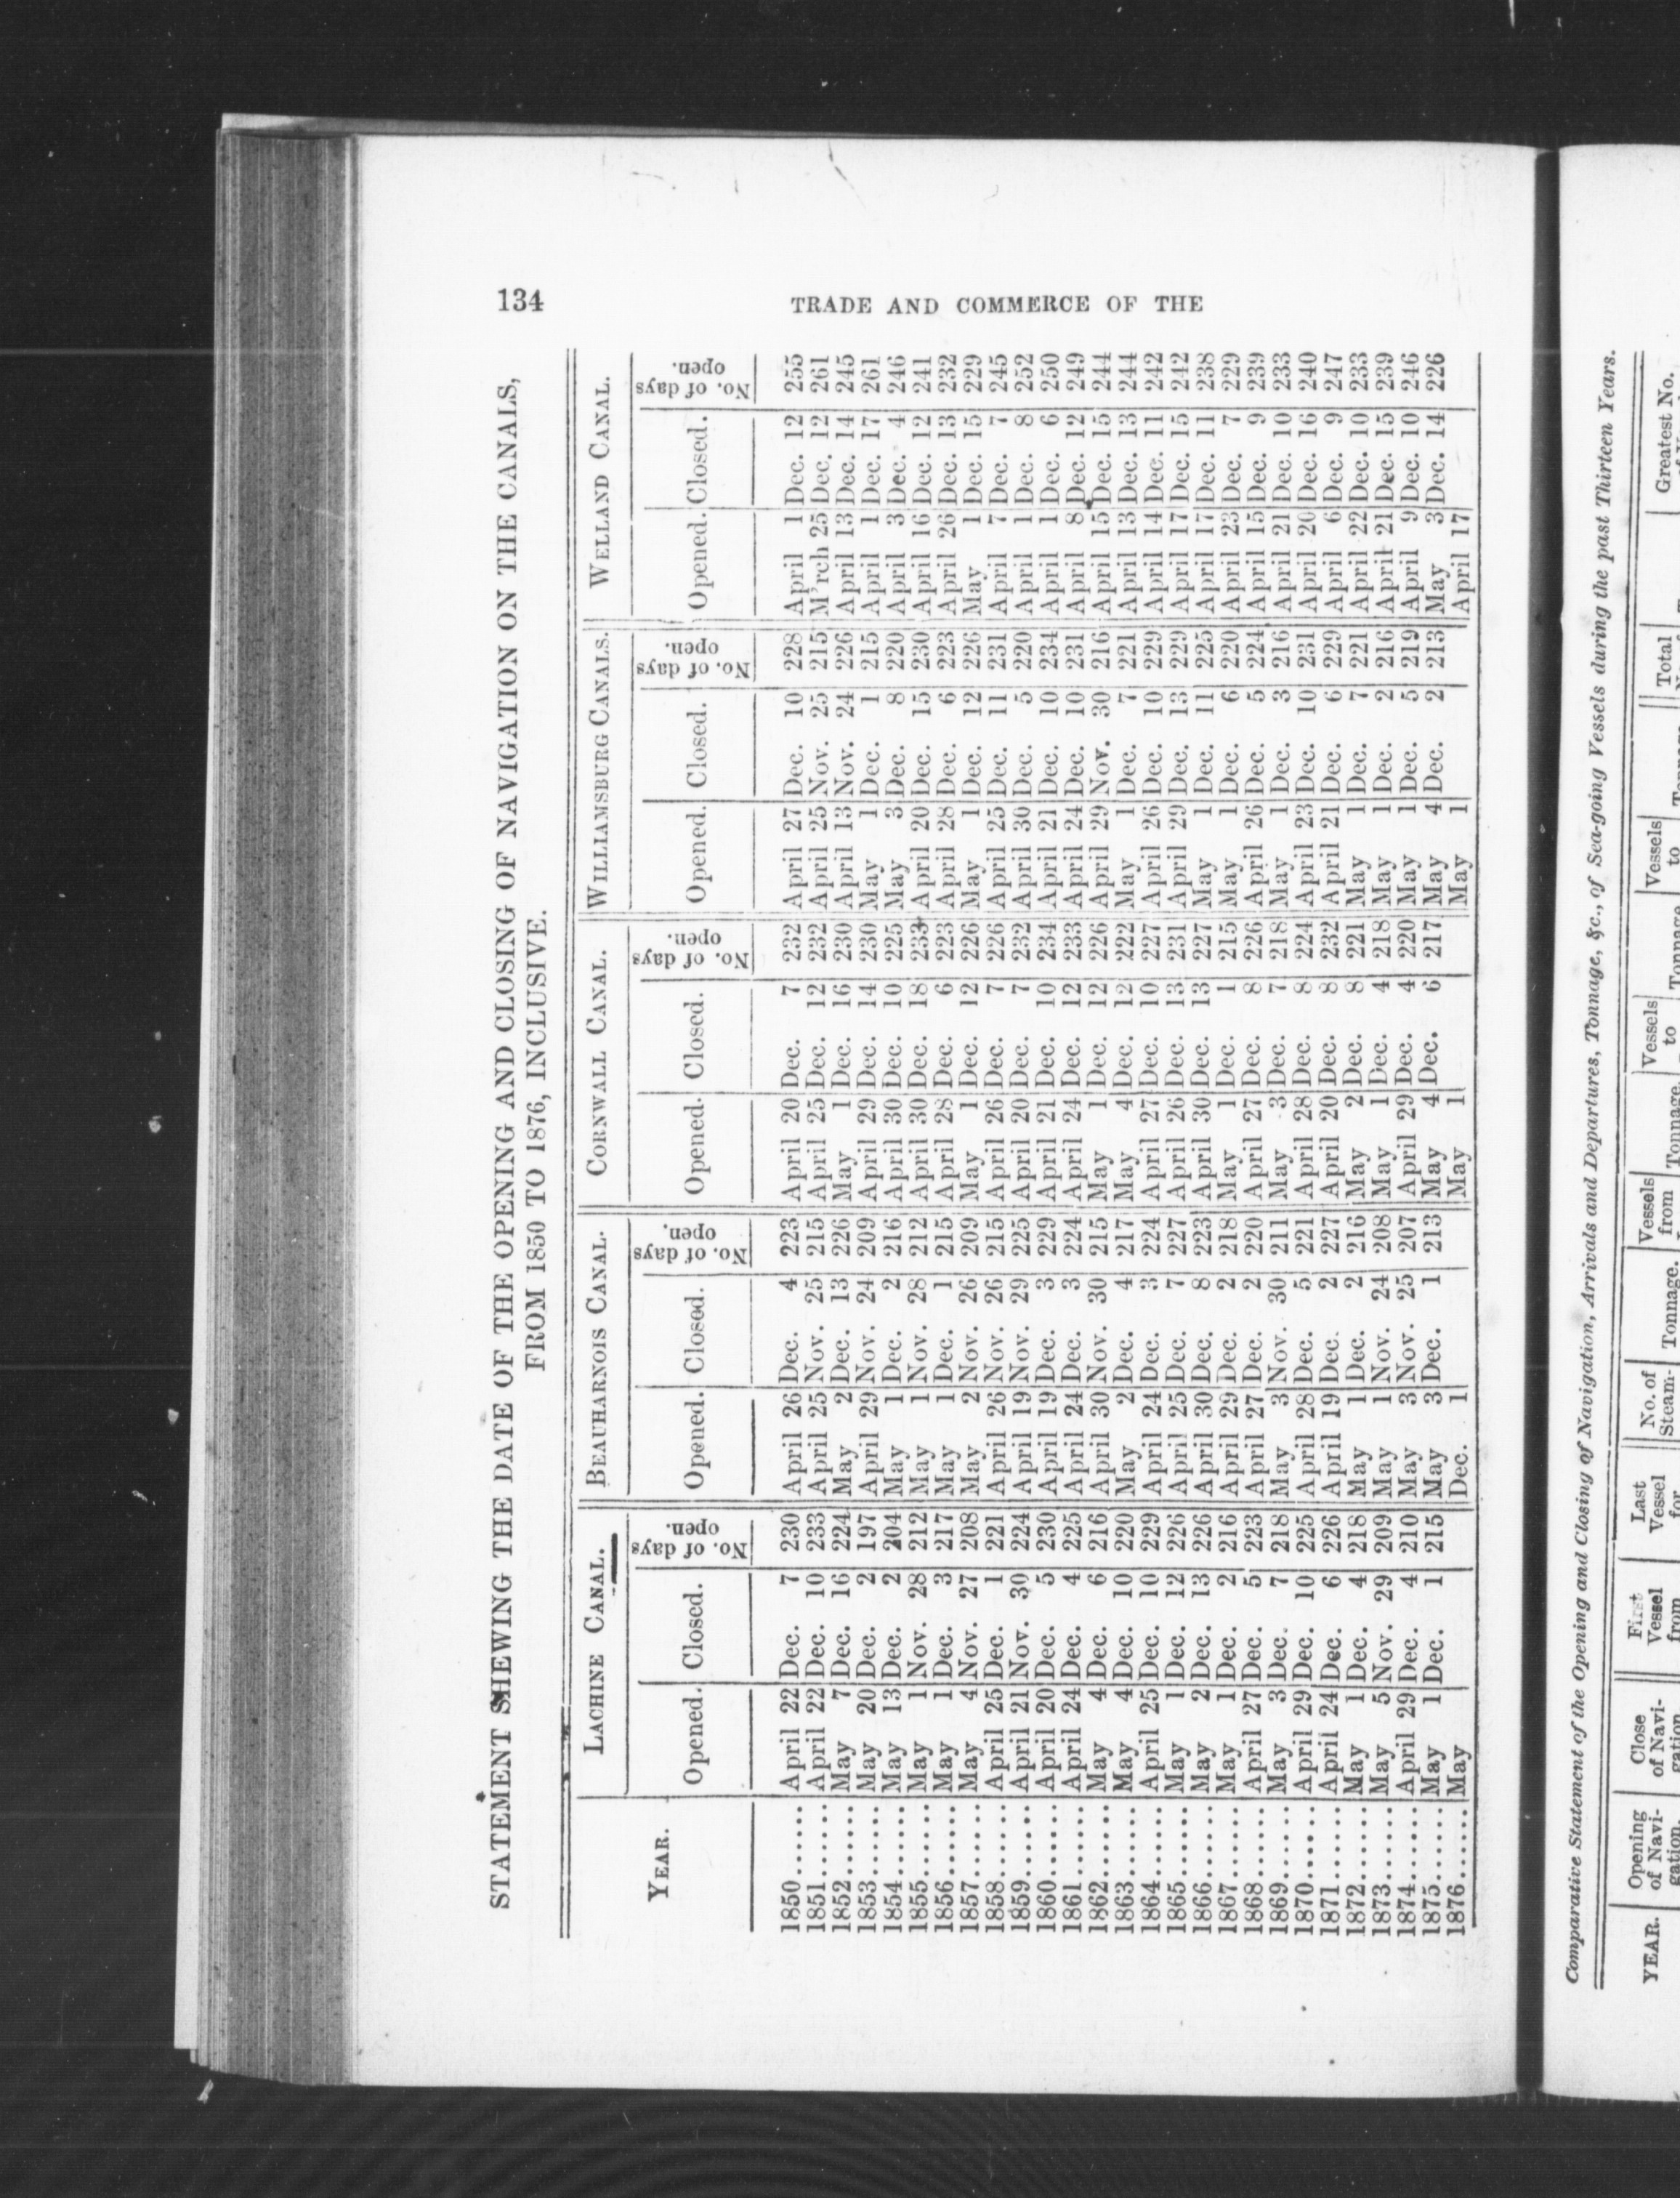 134
TRADE AND COMMERCE OF THE
STATEMENT SHEWING THE DATE OF THE OPENING AND CLOSING OF NAVIGATION ON THE CANALS,
FROM 1850 TO 1876, INCLUSIVE.
YEAR. LACHINE CANAL. BEAUHARNOIS CANAL. CORNWALL CANAL. WILLIAMSBURG CANALS. WELLAND CANAL.
Opened. Closed. No. of days open. Opened. Closed. No. of days open. Opened. Closed. No. of days open. Opened. Closed. No. of days open. Opened. Closed. No. of days open.
1850....... April 22 Dec. 7 230 April 26 Dec. 4 223 April 20 Dec. 7 232 April 27 Dec. 10 228 April 1 Dec. 12 255
1851...... April 22 Dec. 10 233 April 25 Nov. 25 215 April 25 Dec. 12 232 April 25 Nov. 25 215 M'rch 25 Dec. 12 261
1852...... May 7 Dec. 16 224 May 2 Dec. 13 226 May 1 Dec. 16 230 April 13 Nov. 24 226 April 13 Dec. 14 245
1853...... May 20 Dec. 2 197 April 29 Nov. 24 209 April 29 Dec. 14 230 May 1 Dec. 1 215 April 1 Dec. 17 261
1854...... May 13 Dec. 2 204 May 1 Dec. 2 216 April 30 Dec. 10 225 May 3 Dec. 8 220 April 3 Dec. 4 246
1855...... May 1 Nov. 28 212 May 1 Nov. 28 212 April 30 Dec. 18 233 April 20 Dec. 15 230 April 16 Dec. 12 241
1856...... May 1 Dec. 3 217 May 1 Dec. 1 215 April 28 Dec. 6 223 April 28 Dec. 6 223 April 26 Dec. 13 232
1857...... May 4 Nov. 27 208 May 2 Nov. 26 209 May 1 Dec. 12 226 May 1 Dec. 12 226 May 1 Dec. 15 229
1858...... April 25 Dec. 1 221 April 26 Nov. 26 215 April 26 Dec. 7 226 April 25 Dec. 11 231 April 7 Dec. 7 245
1859...... April 21 Nov. 30 224 April 19 Nov. 29 225 April 20 Dec. 7 232 April 30 Dec. 5 220 April 1 Dec. 8 252
1860...... April 20 Dec. 5 230 April 19 Dec. 3 229 April 21 Dec. 10 234 April 21 Dec. 10 234 April 1 Dec. 6 250
1861...... April 24 Dec. 4 225 April 24 Dec. 3 224 April 24 Dec. 12 233 April 24 Dec. 10 231 April 8 Dec. 12 249
1862...... May 4 Dec. 6 216 April 30 Nov. 30 215 May 1 Dec. 12 226 April 29 Nov. 30 216 April 15 Dec. 15 244
1863...... May 4 Dec. 10 220 May 2 Dec. 4 217 May 4 Dec. 12 222 May 1 Dec. 7 221 April 13 Dec. 13 244
1864...... April 25 Dec. 10 229 April 24 Dec. 3 224 April 27 Dec. 10 227 April 26 Dec. 10 229 April 14 Dec. 11 242
1865...... May 1 Dec. 12 226 April 25 Dec. 7 227 April 26 Dec. 13 231 April 29 Dec. 13 229 April 17 Dec. 15 242
1866...... May 2 Dec. 13 226 April 30 Dec. 8 223 April 30 Dec. 13 227 May 1 Dec. 11 225 April 17 Dec. 11 238
1867...... May 1 Dec. 2 216 April 29 Dec. 2 218 May 1 Dec. 1 215 May 1 Dec. 6 220 April 23 Dec. 7 229
1868...... April 27 Dec. 5 223 April 27 Dec. 2 220 April 27 Dec. 8 226 April 26 Dec. 5 224 April 15 Dec. 9 239
1869...... May 3 Dec. 7 218 May 3 Nov. 30 211 May 3 Dec. 7 218 May 1 Dec. 3 216 April 21 Dec. 10 233
1870...... April 29 Dec. 10 225 April 28 Dec. 5 221 April 28 Dec. 8 224 April 23 Dec. 10 231 April 20 Dec. 16 240
1871...... April 24 Dec. 6 226 April 19 Dec. 2 227 April 20 Dec. 8 232 April 21 Dec. 6 229 April 6 Dec. 9 247
1872...... May 1 Dec. 4 218 May 1 Dec. 2 216 May 2 Dec. 8 221 May 1 Dec. 7 221 April 22 Dec. 10 233
1873...... May 5 Nov. 29 209 May 1 Nov. 24 208 May 1 Dec. 4 218 May 1 Dec. 2 216 April 21 Dec. 15 239
1874...... April 29 Dec. 4 210 May 3 Nov. 25 207 April 29 Dec. 4 220 May 1 Dec. 5 219 April 9 Dec. 10 246
1875...... May 1 Dec. 1 215 May 3 Dec. 1 213 May 4 Dec. 6 217 May 4 Dec. 2 213 May 3 Dec. 14 226
1876...... May Dec. 1 May 1 May 1 April 17
Comparative Statement of the Opening and Closing of Navigation, Arrivals and Departures, Tonnage, &c., of Sea-going Vessels during the past Thirteen Years.
YEAR. Opening of Navi- gation. Close of Navi- gation First Vessel from Last Vessel for No. of Steam- Tonnage. Vessels from Tonnage Vessels to Tonnage Vessels to Total Greatest No.